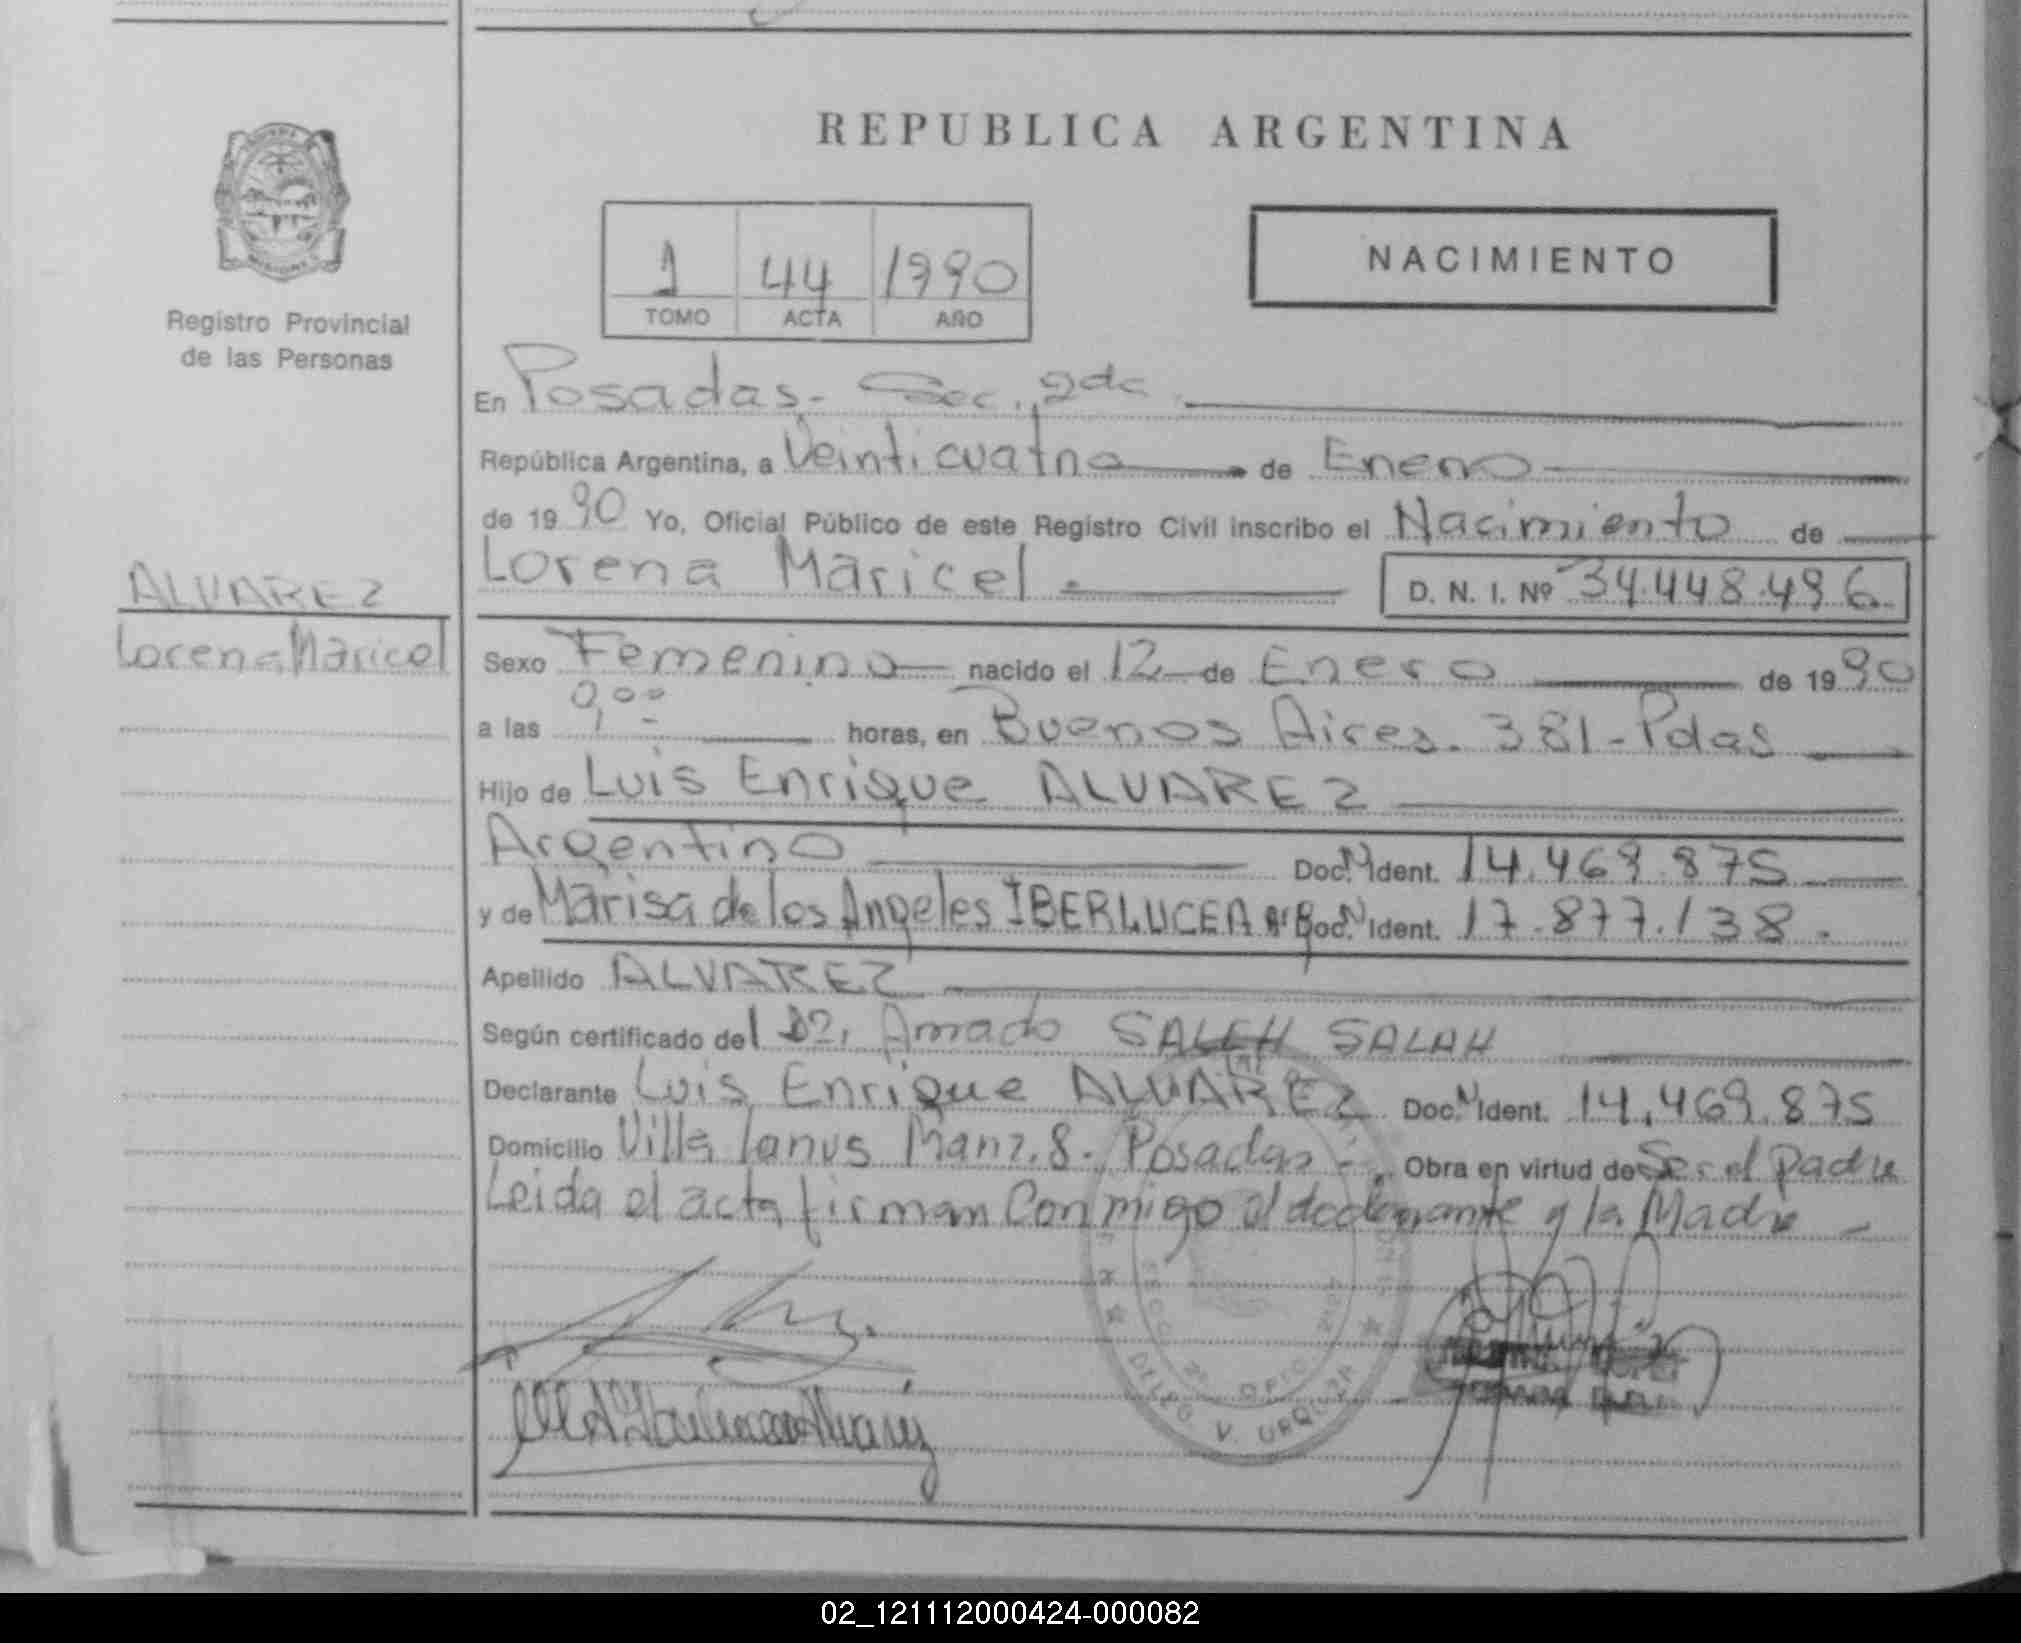 REPUBLICA ARGENTINA
NACIMIENTO
1 44 1990
TOMO ACTA AÑO
Registro Provincial
de las Personas
En Posadas.- Sec. 2da.
República Argentina, a Veinticuatro de Enero
de 1990 Yo, Oficial Público de este Registro Civil inscribo el Nacimiento de
Lorena Maricel D. N. I. Nº 34.448.496
ALVAREZ
Lorena Maricel
Sexo Femenino nacido el 12 de Enero de 1990
a las 9,00 horas, en Buenos Aires. 381-Pdas
Hijo de Luis Enrique ALVAREZ
Argentino Doc. N Ident. 14.469.875
y de Marisa de los Angeles IBERLUCEA Doc. N Ident. 17.877.138.
Apellido ALVAREZ
Según certificado del Dr. Amado SALEH SALAH
Declarante Luis Enrique ALVAREZ Doc. N Ident. 14.469.875
Domicilio Villa lanus Manz. 8. Posadas - Obra en virtud de Ser el Padre
Leida el acta firman Conmigo el declarante y la Madre
V. URQUIZA
02_121112000424-000082